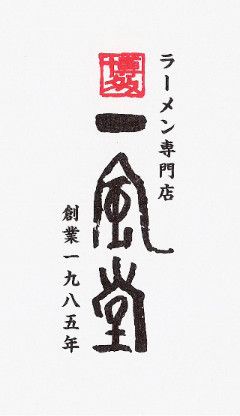 ラーメン専門店
博多
一風堂
創業一九八五年